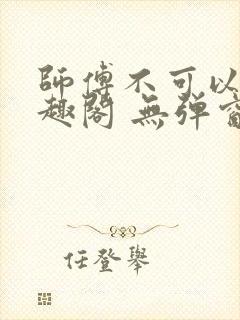 師傅不可以
趣閣 無弹窗
任登舉